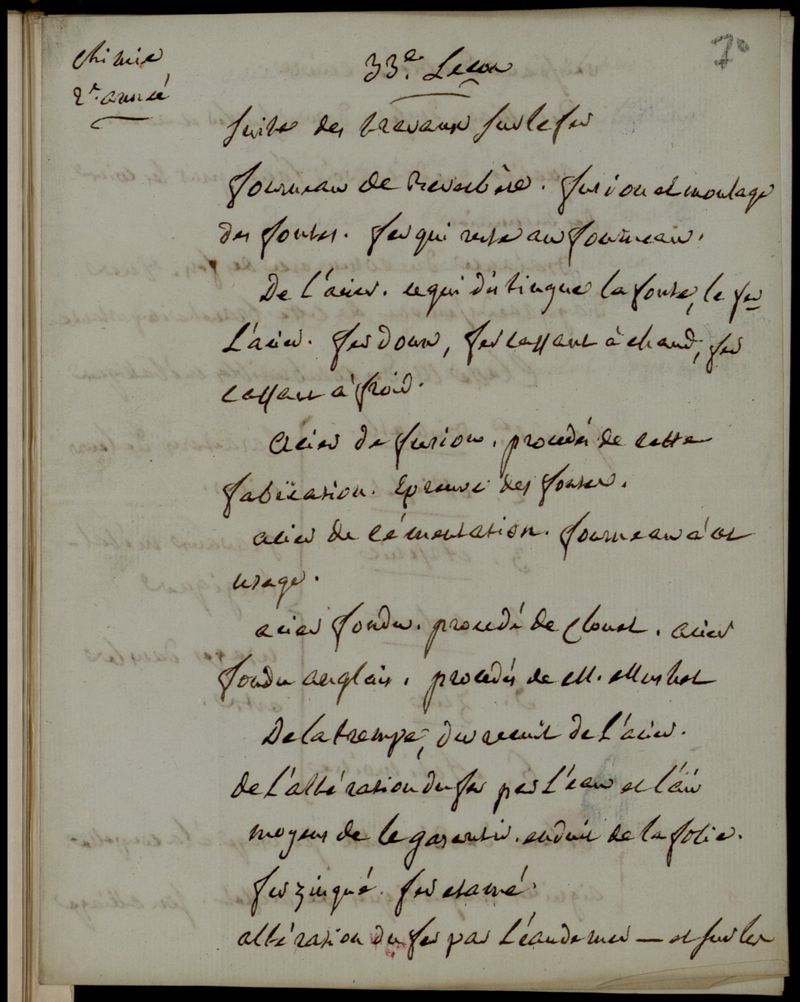 70
chimie
2e. année
33e. Leçon
Suite des travaux sur le fer
fourneau de Reverbère. fusion et moulage
des fontes. fer qui reste au fourneau.
De l'acier. ce qui distingue la fonte, le fer
L'acier. fer doux, fer cassant à chaud, fer
cassant à froid.
Acier de fusion. procédés de cette
fabrication. Epreuve des fontes.
acier de cémentation. fourneau à cet
usage.
acier fondu. procédé de Clouet. acier
fondu anglais. procédés de M. Mushet
De la trempe, du recuit de L'acier.
de L'altération du fer par L'eau et l'air
moyens de le garentir. enduit de la folie.
fer zingué. fer etamé.
altération du fer par L'eau de mer — et sur les